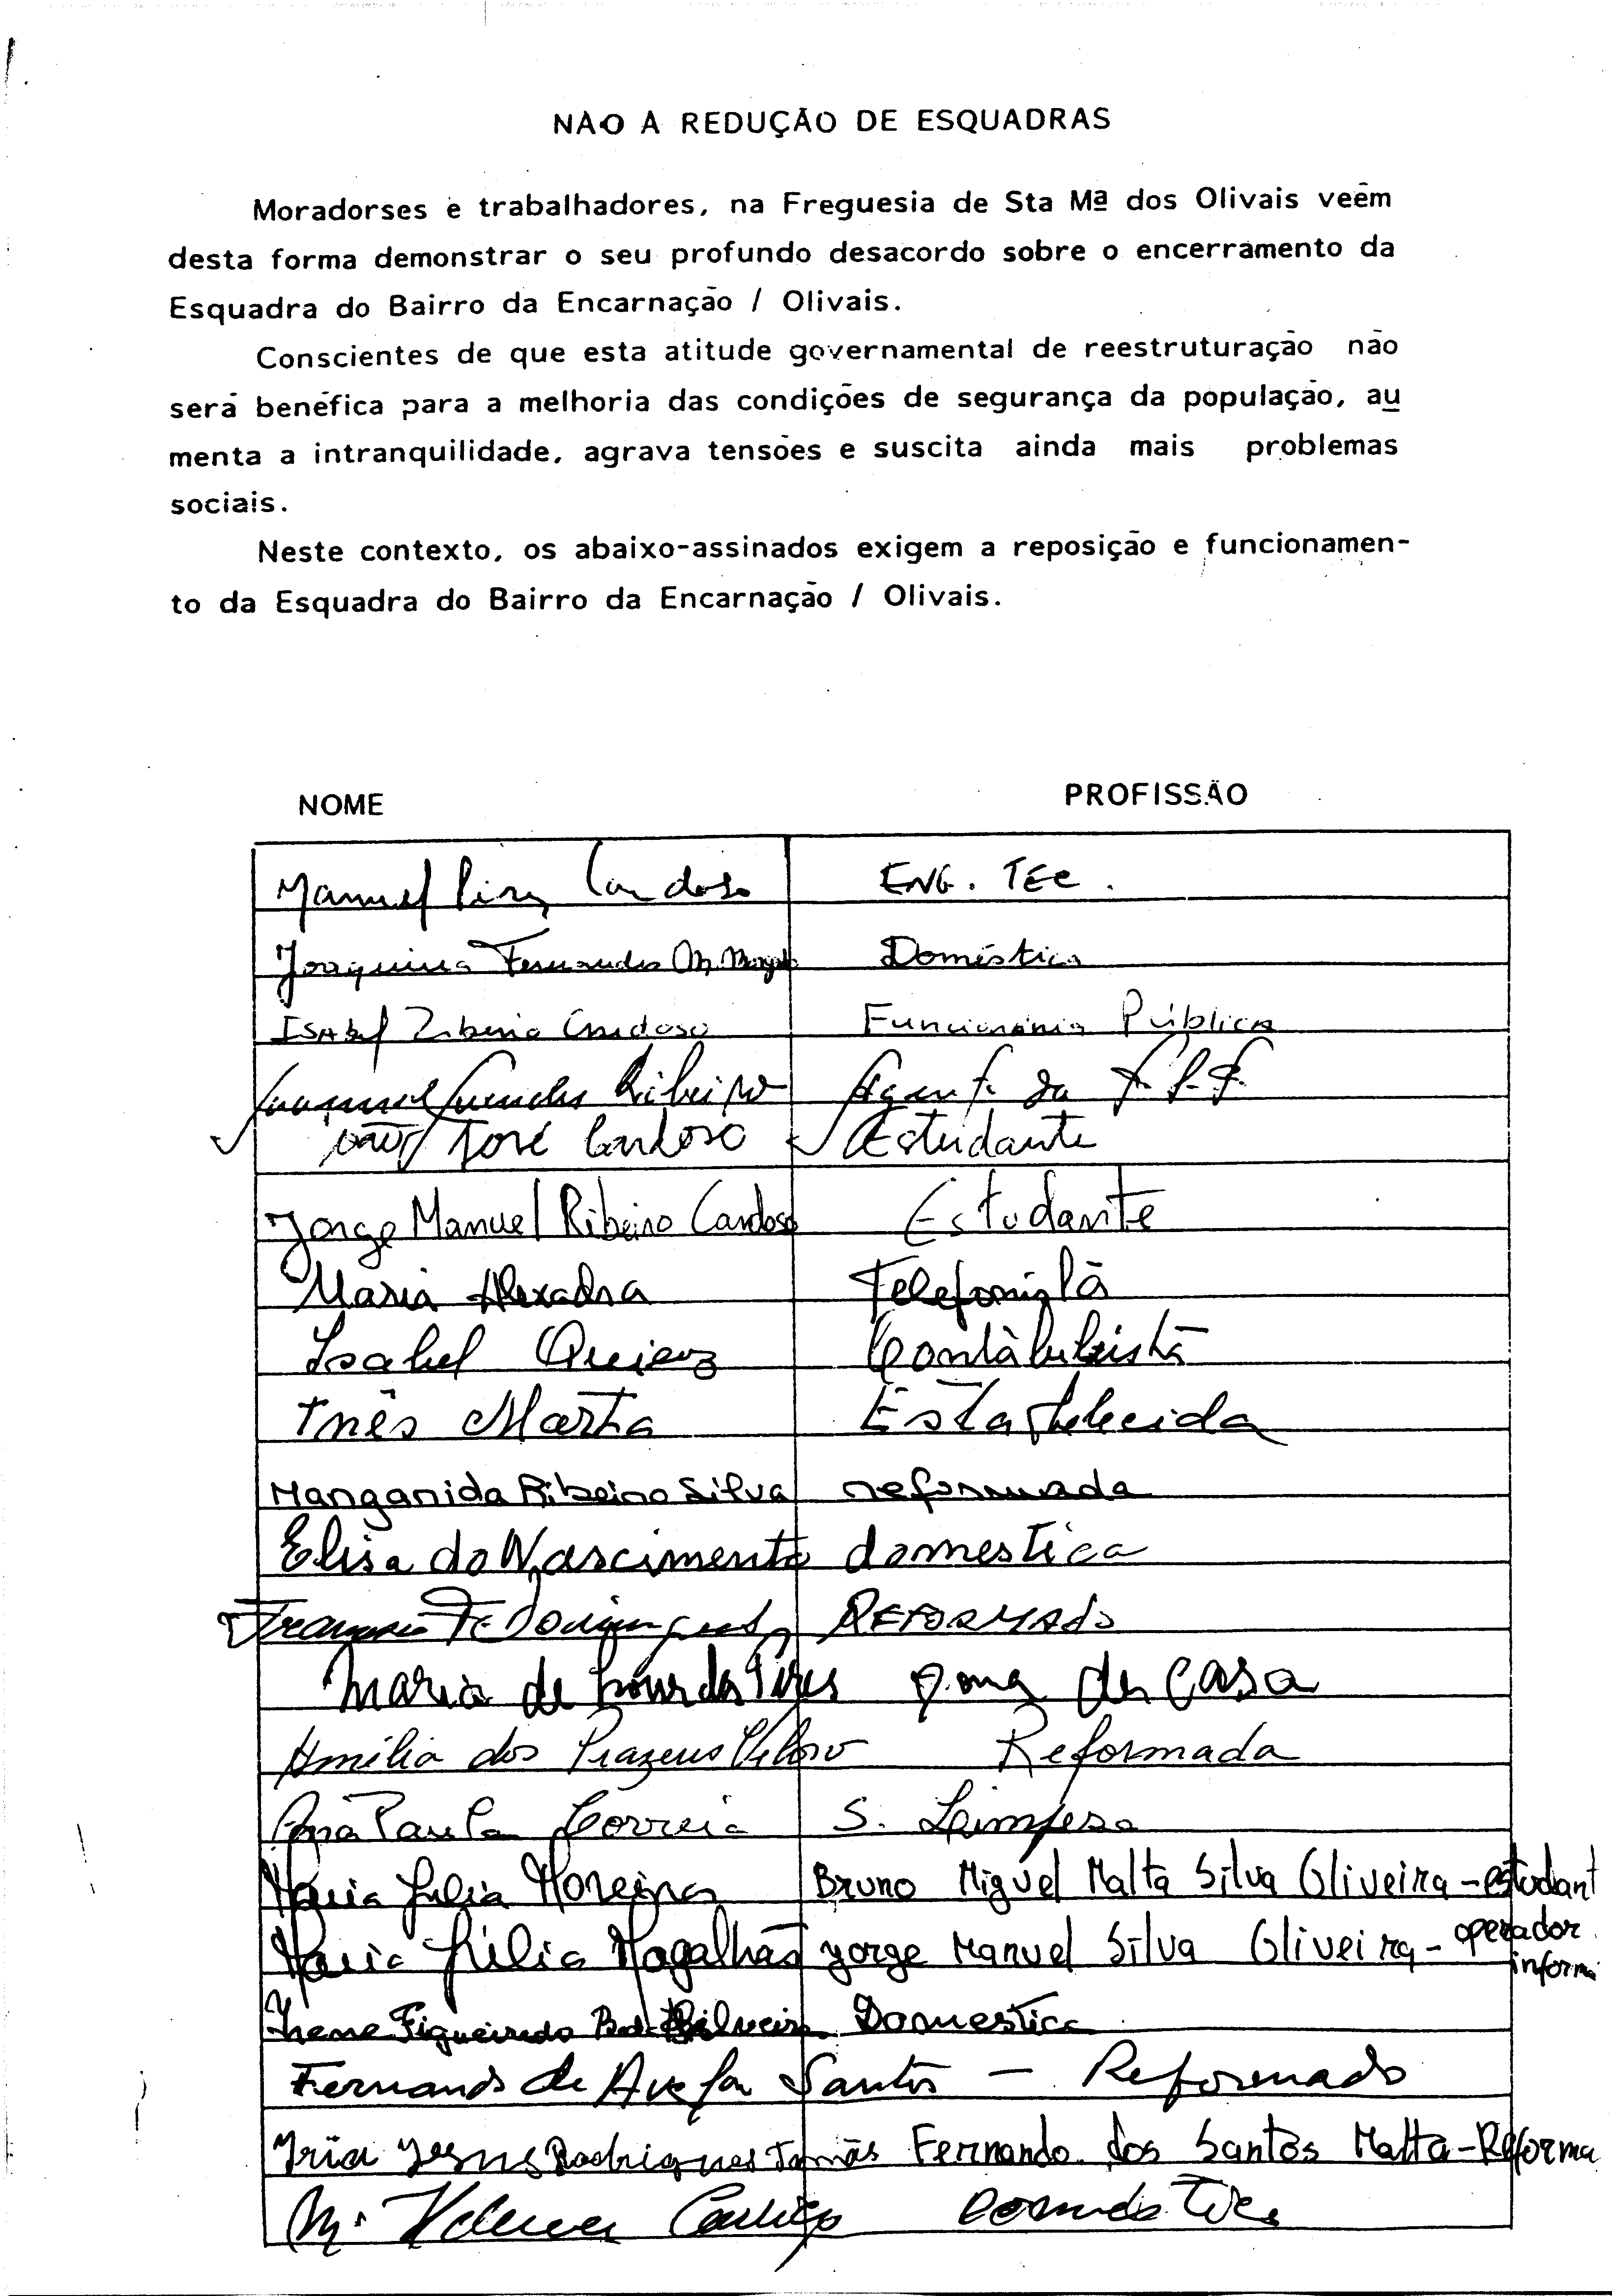 NÃO A REDUÇÃO DE ESQUADRAS
Moradorses e trabalhadores, na Freguesia de Sta Mª dos Olivais veêm
desta forma demonstrar o seu profundo desacordo sobre o encerramento da
Esquadra do Bairro da Encarnação / Olivais.
Conscientes de que esta atitude governamental de reestruturação não
será benéfica para a melhoria das condições de segurança da população, au
menta a intranquilidade, agrava tensões e suscita ainda mais problemas
sociais.
Neste contexto, os abaixo-assinados exigem a reposição e funcionamen-
to da Esquadra do Bairro da Encarnação / Olivais.
NOME PROFISSÃO
Manuel Pires Cardoso ENG. TEC.
Joaquina Fernandes M. Doméstica
Isabel Ribeiro Cardoso Funcionária Pública
Ribeiro Agente da P.S.P.
José Cardoso Estudante
Jorge Manuel Ribeiro Cardoso Estudante
Maria Alexadra Telefonista
Isabel Queiroz Contabilista
Inês Marta Estabelecida
Margarida Ribeiro Silva reformada
Elisa do Nascimento domestica
Domingues REFORMADO
Maria de Lourdes Pires Dona de Casa
Amélia dos Prazeres Veloso Reformada
Ana Paula Correia S. Limpesa
Maria Julia Moreira Bruno Miguel Malta Silva Oliveira - estudant
Maria Júlia Magalhães Jorge Manuel Silva Oliveira - operador
inform
Irene Figueiredo Silveira Domestica
Fernando de Avelar Santos - Reformado
Iria Jesus Rodrigues Tomás Fernando dos Santos Malta - Reforma
M. Helena